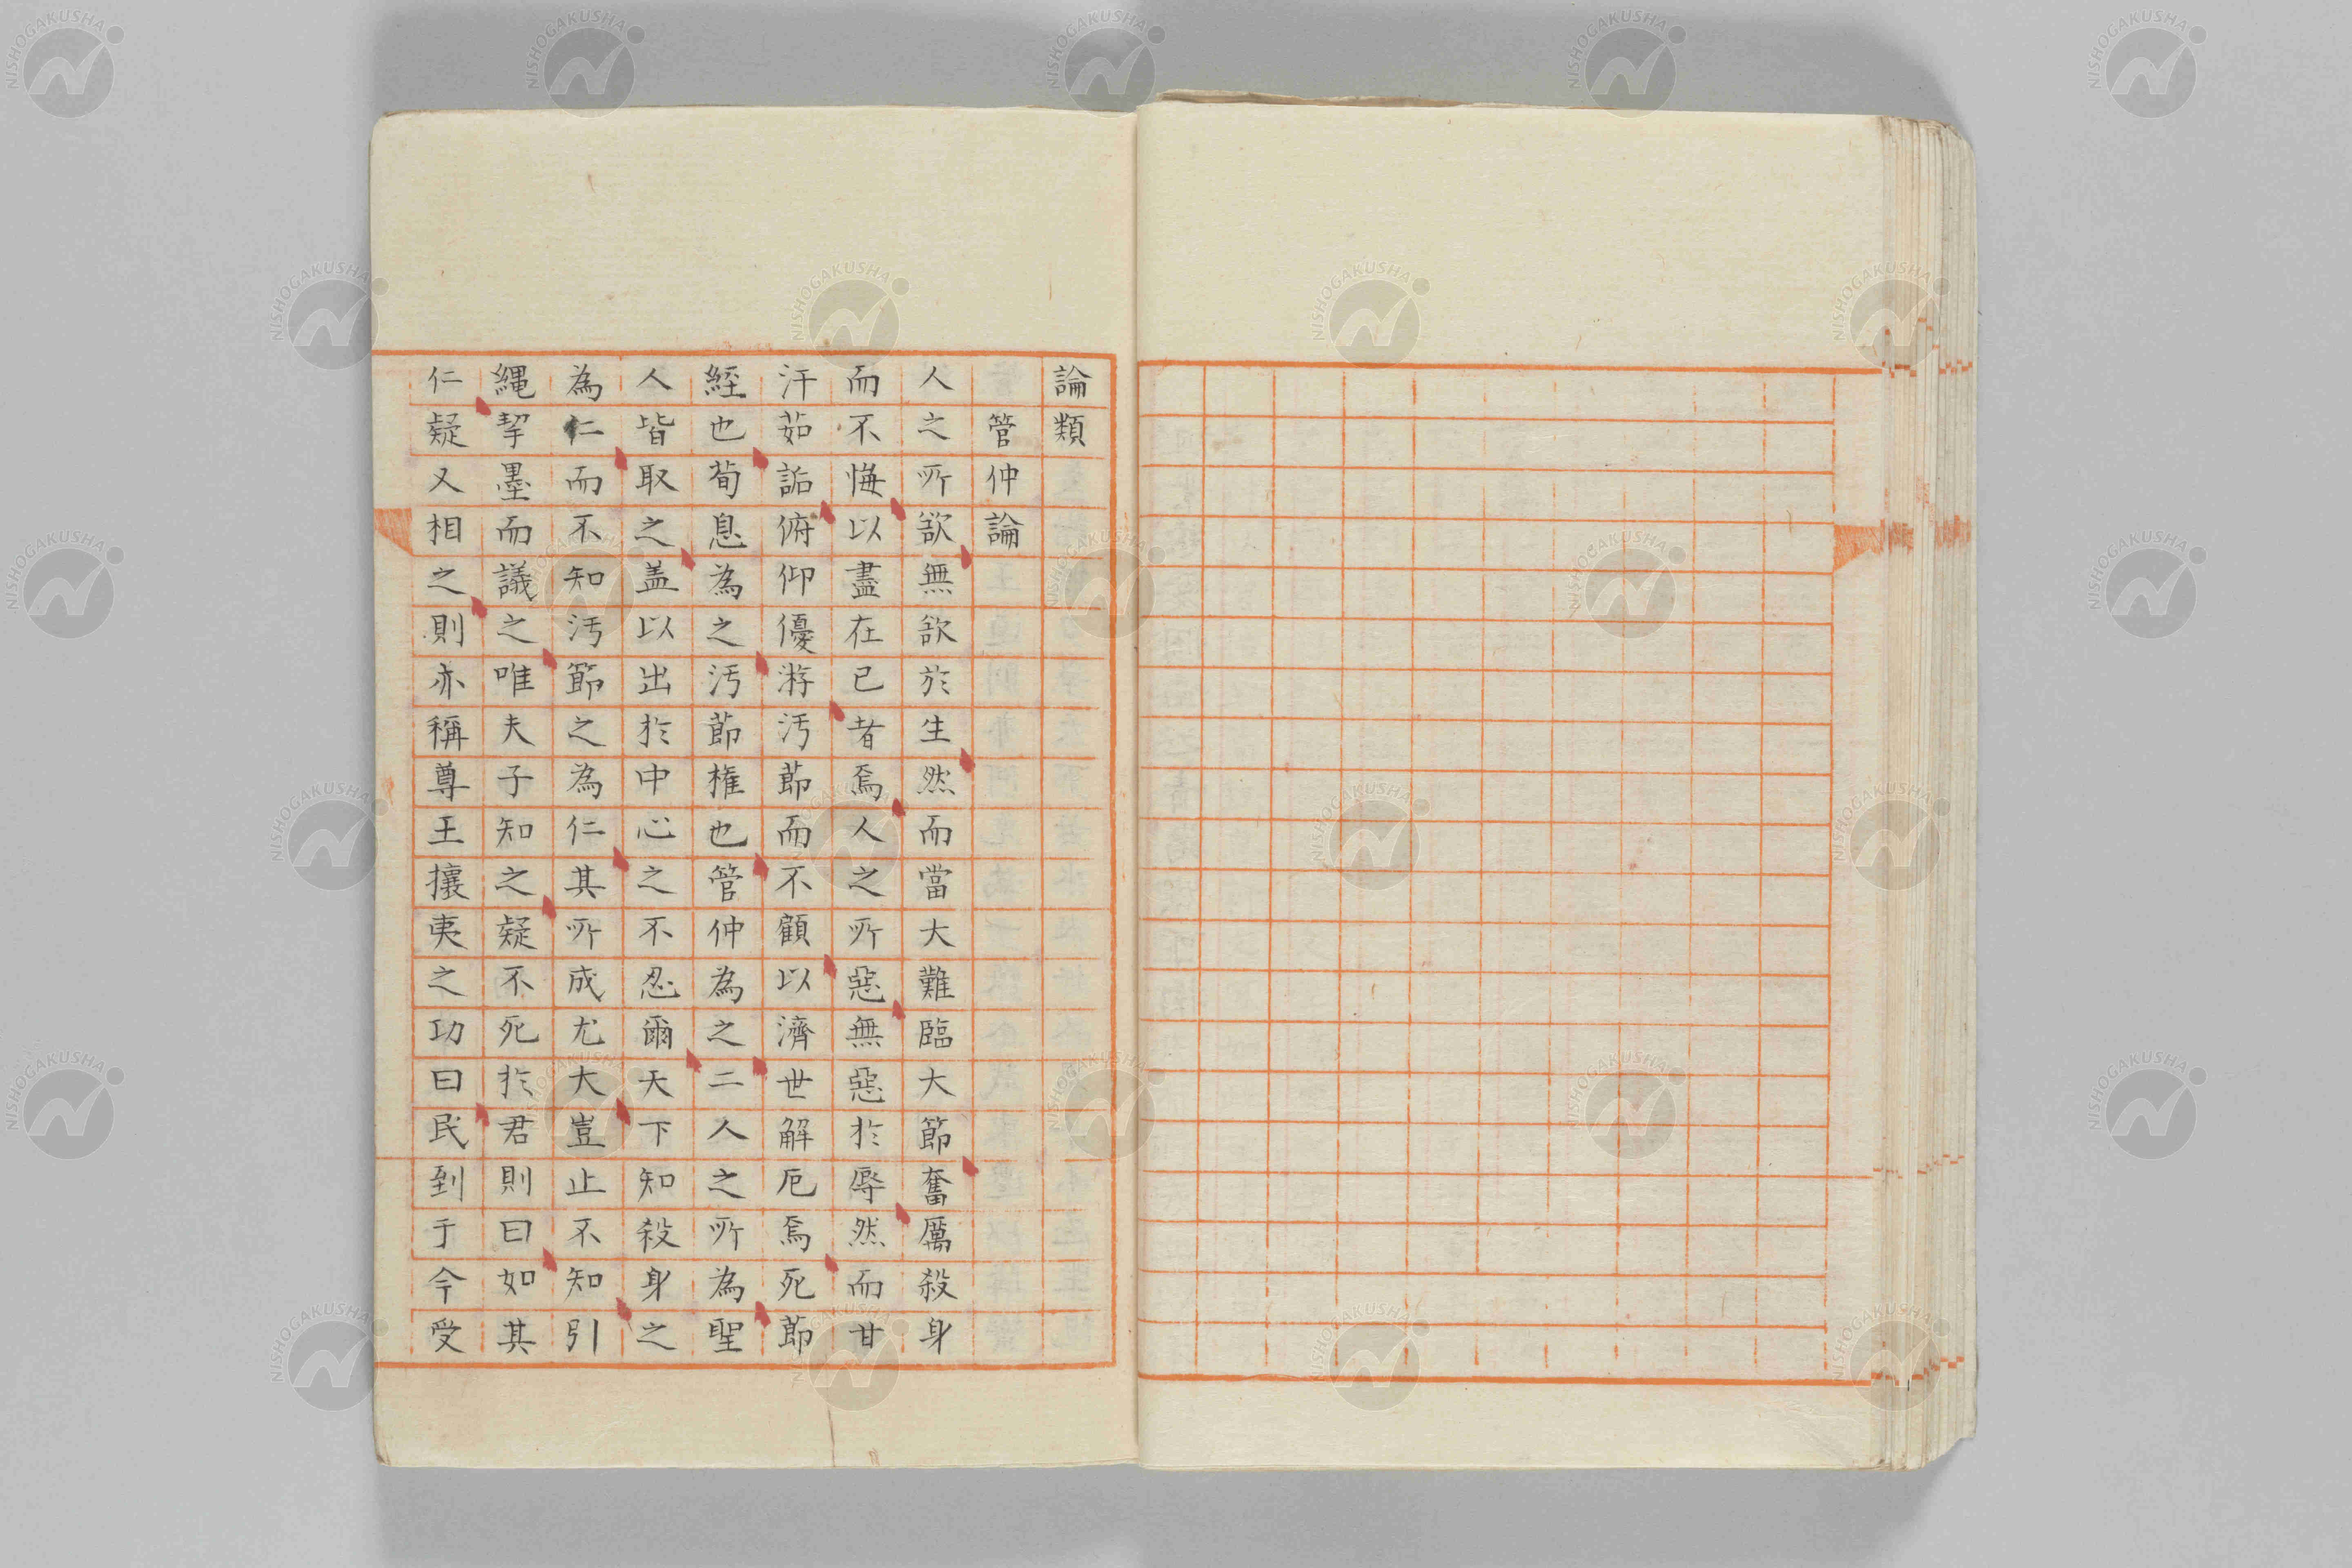 論類
管仲論
人之所欲無欲於生然而當大難臨大節奮厲殺身
而不悔以盡在己者焉人之所惡無惡於辱然而甘
汗茹詬俯仰優游汚節而不顧以濟世解厄焉死節
經也荀息為之汚節権也管仲為之二人之所為聖
人皆取之盖以出於中心之不忍爾天下知殺身之
為仁而不知汚節之為仁其所成尤大豈止不知引
繩挈墨而議之唯夫子知之疑不死於君則曰如其
仁疑又相之則亦稱尊王攘夷之功曰民到于今受
NISHOGAKUSHA